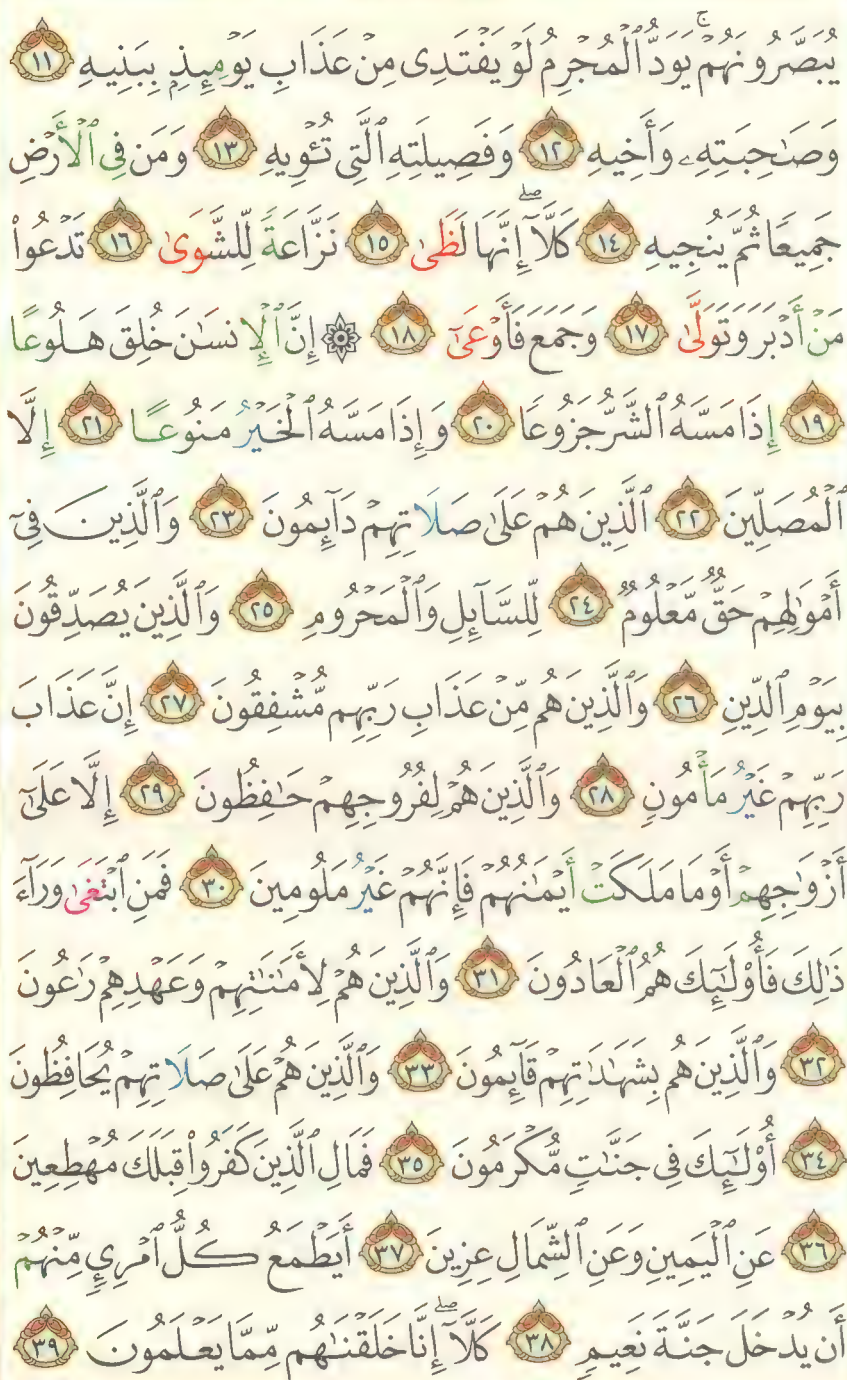 يُبَصَّرُونَهُمْۚ يَوَدُّ ٱلْمُجْرِمُ لَوْ يَفْتَدِى مِنْ عَذَابِ يَوْمِئِذٍۭ بِبَنِيهِ ١١
وَصَٰحِبَتِهِۦ وَأَخِيهِ ١٢ وَفَصِيلَتِهِ ٱلَّتِى تُـْٔوِيهِ ١٣ وَمَن فِى ٱلْأَرْضِ
جَمِيعًا ثُمَّ يُنجِيهِ ١٤ كَلَّآۖ إِنَّهَا لَظَىٰ ١٥ نَزَّاعَةً لِّلشَّوَىٰ ١٦ تَدْعُوا۟
مَنْ أَدْبَرَ وَتَوَلَّىٰ ١٧ وَجَمَعَ فَأَوْعَىٰٓ ١٨ ۞ إِنَّ ٱلْإِنسَٰنَ خُلِقَ هَلُوعًا
١٩ إِذَا مَسَّهُ ٱلشَّرُّ جَزُوعًا ٢٠ وَإِذَا مَسَّهُ ٱلْخَيْرُ مَنُوعًا ٢١ إِلَّا
ٱلْمُصَلِّينَ ٢٢ ٱلَّذِينَ هُمْ عَلَىٰ صَلَاتِهِمْ دَآئِمُونَ ٢٣ وَٱلَّذِينَ فِىٓ
أَمْوَٰلِهِمْ حَقٌّ مَّعْلُومٌ ٢٤ لِّلسَّآئِلِ وَٱلْمَحْرُومِ ٢٥ وَٱلَّذِينَ يُصَدِّقُونَ
بِيَوْمِ ٱلدِّينِ ٢٦ وَٱلَّذِينَ هُم مِّنْ عَذَابِ رَبِّهِم مُّشْفِقُونَ ٢٧ إِنَّ عَذَابَ
رَبِّهِمْ غَيْرُ مَأْمُونٍ ٢٨ وَٱلَّذِينَ هُمْ لِفُرُوجِهِمْ حَٰفِظُونَ ٢٩ إِلَّا عَلَىٰٓ
أَزْوَٰجِهِمْ أَوْ مَا مَلَكَتْ أَيْمَٰنُهُمْ فَإِنَّهُمْ غَيْرُ مَلُومِينَ ٣٠ فَمَنِ ٱبْتَغَىٰ وَرَآءَ
ذَٰلِكَ فَأُو۟لَٰٓئِكَ هُمُ ٱلْعَادُونَ ٣١ وَٱلَّذِينَ هُمْ لِأَمَٰنَٰتِهِمْ وَعَهْدِهِمْ رَٰعُونَ
٣٢ وَٱلَّذِينَ هُم بِشَهَٰدَٰتِهِمْ قَآئِمُونَ ٣٣ وَٱلَّذِينَ هُمْ عَلَىٰ صَلَاتِهِمْ يُحَافِظُونَ
٣٤ أُو۟لَٰٓئِكَ فِى جَنَّٰتٍ مُّكْرَمُونَ ٣٥ فَمَالِ ٱلَّذِينَ كَفَرُوا۟ قِبَلَكَ مُهْطِعِينَ
٣٦ عَنِ ٱلْيَمِينِ وَعَنِ ٱلشِّمَالِ عِزِينَ ٣٧ أَيَطْمَعُ كُلُّ ٱمْرِئٍ مِّنْهُمْ
أَن يُدْخَلَ جَنَّةَ نَعِيمٍ ٣٨ كَلَّآۖ إِنَّا خَلَقْنَٰهُم مِّمَّا يَعْلَمُونَ ٣٩